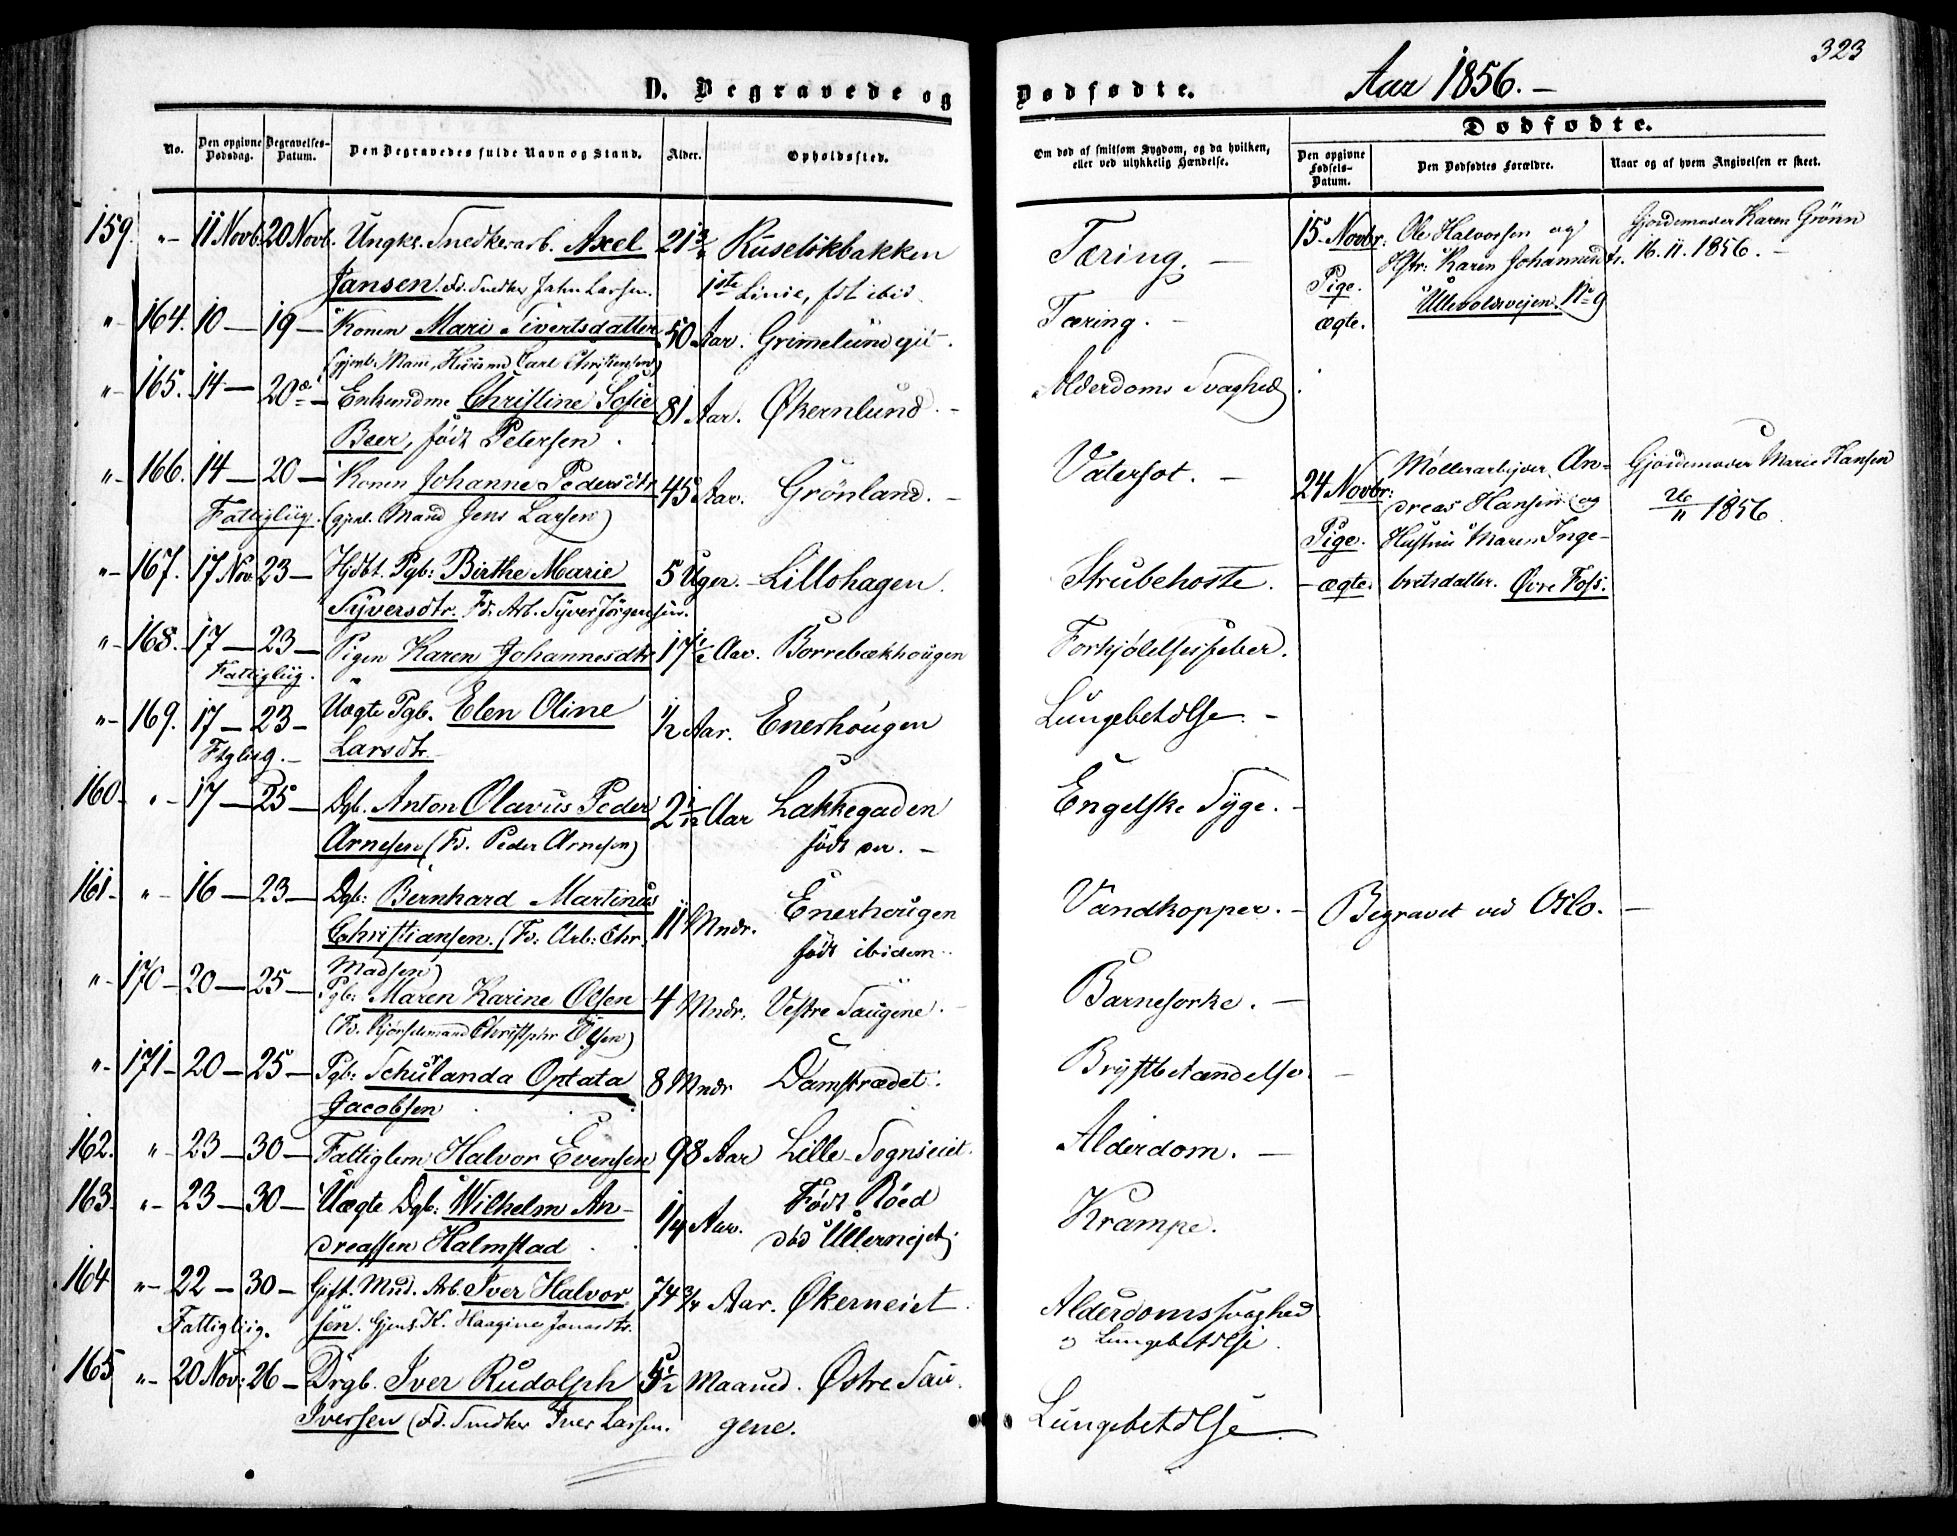 323
D. Begravede og Dødfødte. Aar 1856. –
Dødfødte.
No. Den opgivne Dødsdag. Begravelses-Datum. Den Begravedes fulde Navn og Stand. Alder. Opholdssted. Om død af smitsom Sygdom, og da hvilken, eller ved ulykkelig Hændelse. Den opgivne Fødsels-Datum. Den Dødfødtes Forældre. Naar og af hvem Angivelsen er skeet.
159. "– 11 Novb. 20 Novb. Ungkr. Snedkerarb. Axel 21 3/4 Ruseløkbakken Tæring. –
Jansen. Fd. Snedker Jahn Larsen. 1ste Linie, fdt ibid.
15 Novbr. Ole Halvorsen og Gjordemoder Karen Grönn
Hstr: Karen Johannesdt. 16.11.1856. –
Pige. Ullevoldsveien. No 9
ægte.
"– 164. 10 – 19 – Konen Mari Sivertsdatter 50 Aar. Grimelund eje –. Tæring. –
(gjenl. Mand, Huusmd Carl Christensen)
"– 165. 14 – 20de – Enkemdme Christine Sofie 81 Aar. Økernlund. – Alderdoms Svaghed.
Beer, født Petersen.
"– 166. 14 – 20 – Konen Johanne Pedersdtr 45 Aar. Grönland. – Vatersot. –
Fattigliig. (gjenl. Mand Jens Larsen)
24 Novbr: Møllerarbejder An- Gjordemoder Marie Hansen
dreas Hansen og 26/11 1856.
Pige. Hustru Maren Inge-
– ægte. bretsdatter. Øvre Foss.
"– 167. 17 Nov. 23 – Hjdbt. Pgb: Birthe Marie 5 Uger. – Lillohagen. Strubehoste.
Syversdtr. Fd: Arb. Syver Jörgensen.
"– 168. 17 – 23 – Pigen Karen Johannesdtr 17 1/2 Aar. Borrebækhougen Forkjølelsesfeber.
Fattigliig.
"– 169. 17 – 23 – Uægte Pgb. Elen Oline 1/2 Aar. Enerhougen Lungebetdlse. –
Ftgliig. – Larsdtr.
160 – "– 17 – 25 – Dgb. Anton Olavus Peder 2 1/12 Aar Lakkegaden Engelske Syge. –
Arnesen (Fd. Peder Arnesen) født der. –
161 – "– 16 – 23 – Dgb: Bernhard Martinus 11 Mndr. Enerhougen Vandkopper. – Begravet ved Oslo. –
Christiansen. (Fd: Arb: Chr. født ibidem.
Madsen)
"– 170 – 20 – 25 – Pgb: Maren Karine Olsen 4 Mndr. Vestre Saugene. – Barnesorke. –
(Fd. Kjørselsmand Christopher Olsen)
"– 171 – 20 – 25 – Pgb: Schulanda Optata 8 Mndr Damstrædet. Brystbetændelse. –
Jacobsen
162. " 23 – 30 – Fattiglem Halvor Evensen 98 Aar Lille-Sognseiet. Alderdom. –
163 – "– 23 – 30 – Uægte Dgb: Wilhelm An- 1/4 Aar. Født Röed Krampe.
dreassen Halmstad død Ullernejet.
164 "– 22 – 30 – Gift. Mnd. Arb. Iver Halvor 74 3/4 Aar. Økerneiet Alderdomssvaghed
Fattigliig. sen. Gjens. K. Haagine Jonasdtr. og Lungebetdlse.
165 "– 20 Nov: 26 – Drgb. Iver Rudolph 5 1/2 Maaned. Østre Sau-
Iversen (Fd. Snedker Iver Larsen. gene. Lungebetdlse.